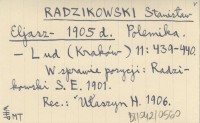 RADZIKOWSKI Stanisław
Eljasz- 1905 d. Polemika.
- Lud (Kraków) 11: 439-440.
W sprawie pozycji: Radzi-
kowski S. E. 1901.
Rec.: Ułaszyn H. 1906.
MT